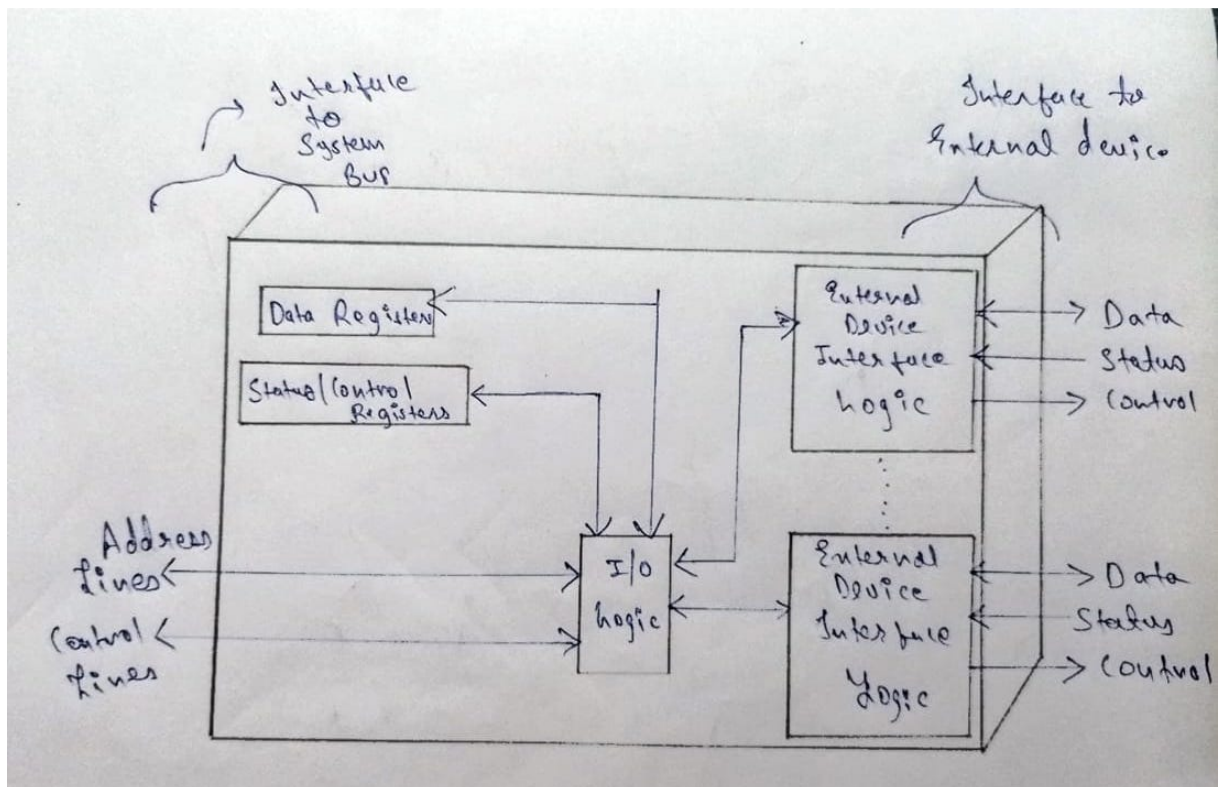 Interface
to
System
Bus
Interface to
External device
Data Registers
Status/Control
Registers
External
Device
Interface
Logic
Data
Status
Control
Address
Lines
Control
Lines
I/O
Logic
External
Device
Interface
Logic
Data
Status
Control